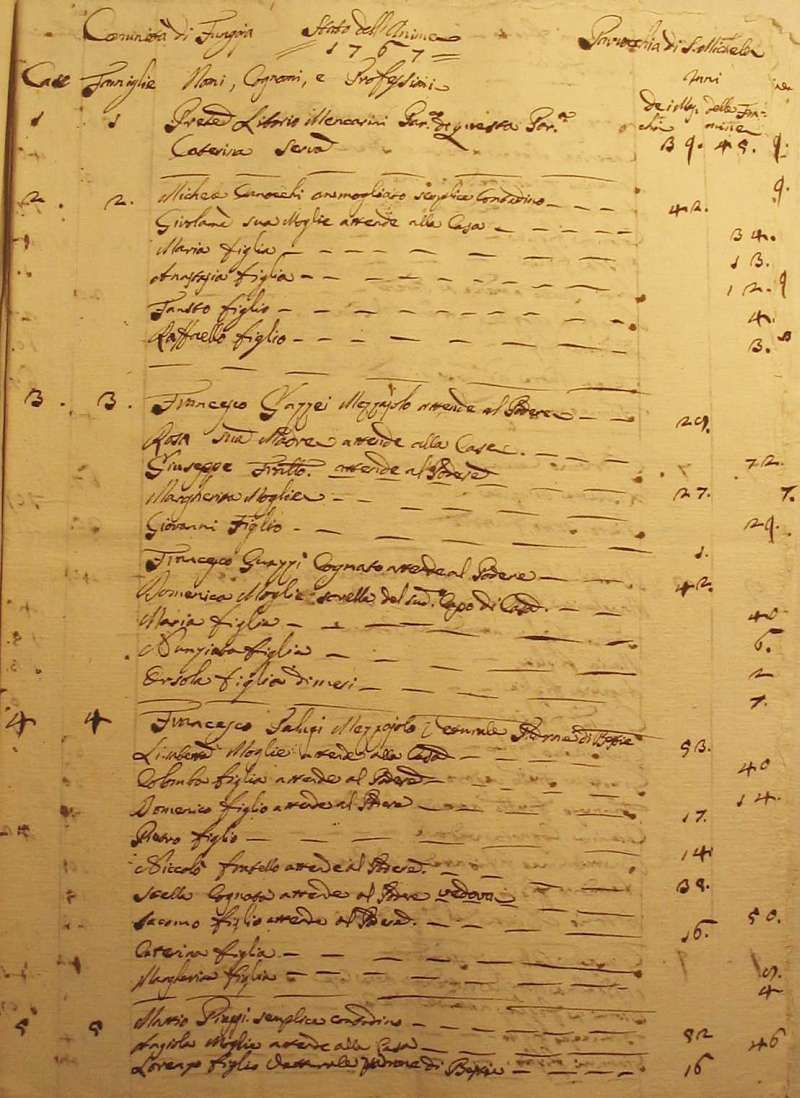 Comunità di Stato dell'Anime Parrocchia di S. Michele
1767
Case Famiglie Nomi, Cognomi, e Professioni Anni
de i Maschi delle Femmine
1 1 Prete Liborio Mencarini Par. di questa Par. 39. 45.
Caterina Serva
2. 2. Michele ammogliato semplice Contadino 42.
Girolama sua Moglie attende alla Casa 34.
Maria figlia 13.
Anastasia figlia 12.
Fausto figlio 4.
Raffaello figlio 3.
3. 3. Francesco Mezzajolo attende al Podere 29.
Rosa sua Madre attende alla Case 72.
Giuseppe Fratto. attende al Podere 27.
Margherita Moglie 29.
Giovanni Figlio 1.
Francesco Cognato attende al Podere 42.
Domenica Moglie sorella del sud. Capo di Casa 40
Maria figlia 6.
Nunziata figlia 2
Orsola figlia di mesi 7.
4 4 Francesco Mezzajolo Vetturale Padrone di Bestie 53.
Moglie attende alla Casa 40
Colomba figlia attende al Podere 14.
Domenico figlio attende al Podere 17.
Pietro figlio 14
Niccolò fratello attende al Podere. 38.
Stella Cognata attende al Podere vedova 50.
Iacomo figlio attende al Podere. 16.
Caterina figlia 9.
Margherita figlia 4
5 5 Mattio semplice contadino 52
Angiola Moglie attende alla Casa 46
Lorenzo figlio Vetturale Padrone di Bestie 16